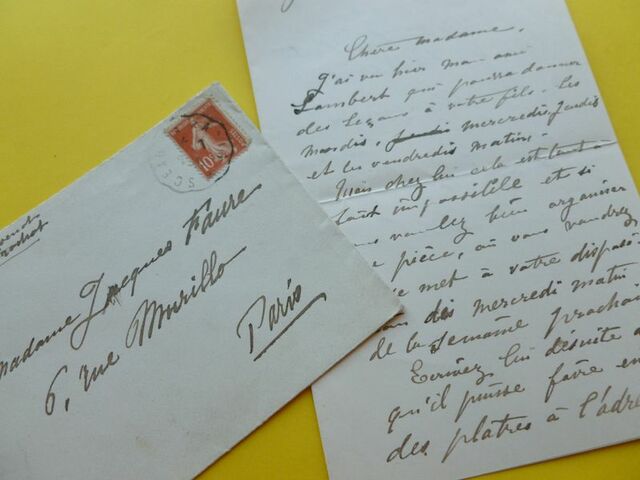 Chère madame,
J'ai vu hier mon ami
Lambert qui pourra donner
des leçons à votre fils les
mardis, mercredis jeudis
et les vendredis matins.
Mais chez lui cela est tout à
fait impossible et si
vous voulez bien organiser
pièce, où vous voudrez
se met à votre disposi
dès mercredi matin
de la semaine prochai
Ecrivez lui de suite a
qu'il puisse faire en
des platres à l'adre
10c
SCEA
Madame Jacques Faure
6, rue Murillo
Paris